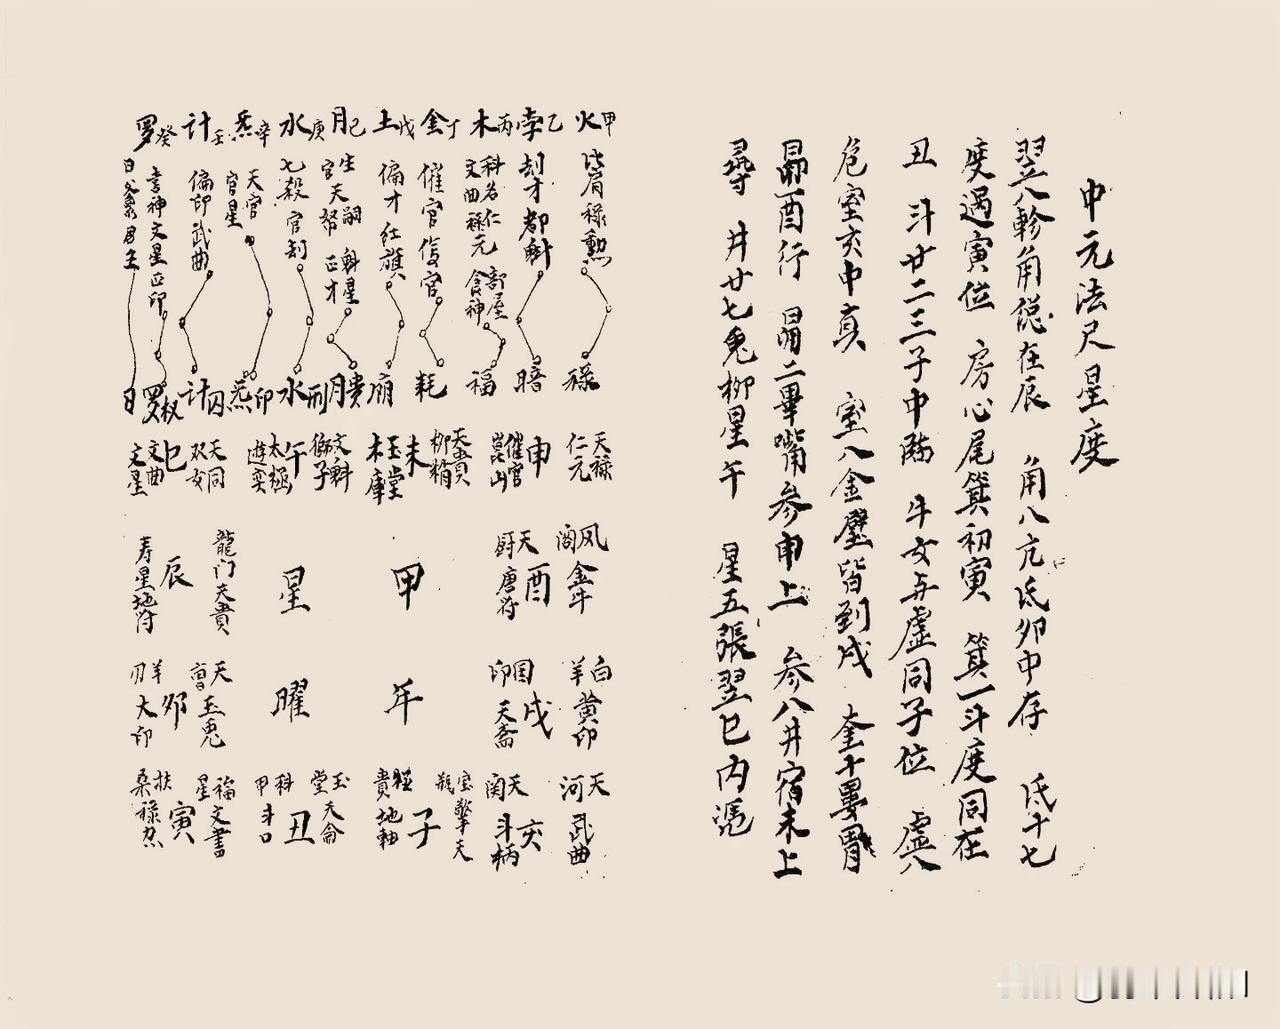 中元法尺星度
翌八軫角總在辰 角八亢氐卯中存 氐十七
度過寅位 房心尾箕初寅 箕一斗度同在
丑 斗廿二三子中臨 牛女与虛同子位 虛八
危室亥中真 室八金壁皆到戌 奎十婁胃
昴酉行 昴二畢嘴參申上 參八井宿未上
尋 井廿七鬼柳星午 星五張翌巳内憑
甲火
比肩祿勳
祿
乙孛
刼才都斛
暗
丙木
科名仁部屋
文曲祿元食神
福
丁金
催官俊官
耗
戊土
偏才紅旗
廟
己月
生天嗣魁星
官天帑正才
貴月
庚水
七殺官刦
刑水
辛炁
天官
官星
印炁
壬計
偏印武曲
囚計
癸罗
喜神文星正印
权罗
日
日
天祿
仁元
申
催官
崑山
天貴
柳稍
未
玉堂
木庫
文斛
獅子
午
太極
遊奕
天同
双女
巳
文曲
文星
风金牛
閣
酉
天唐符
廚
白黄印
羊
戌
国
印天斋
天武曲
河
亥
天斗柄
関
宝擎天
瓶
子
極地軸
貴
玉天侖
堂
丑
科斗口
甲
福文書
星
寅
扶祿
桑
天玉兎
卯
羊大印
刃
龍门天貴
辰
寿星地符
甲年
星曜